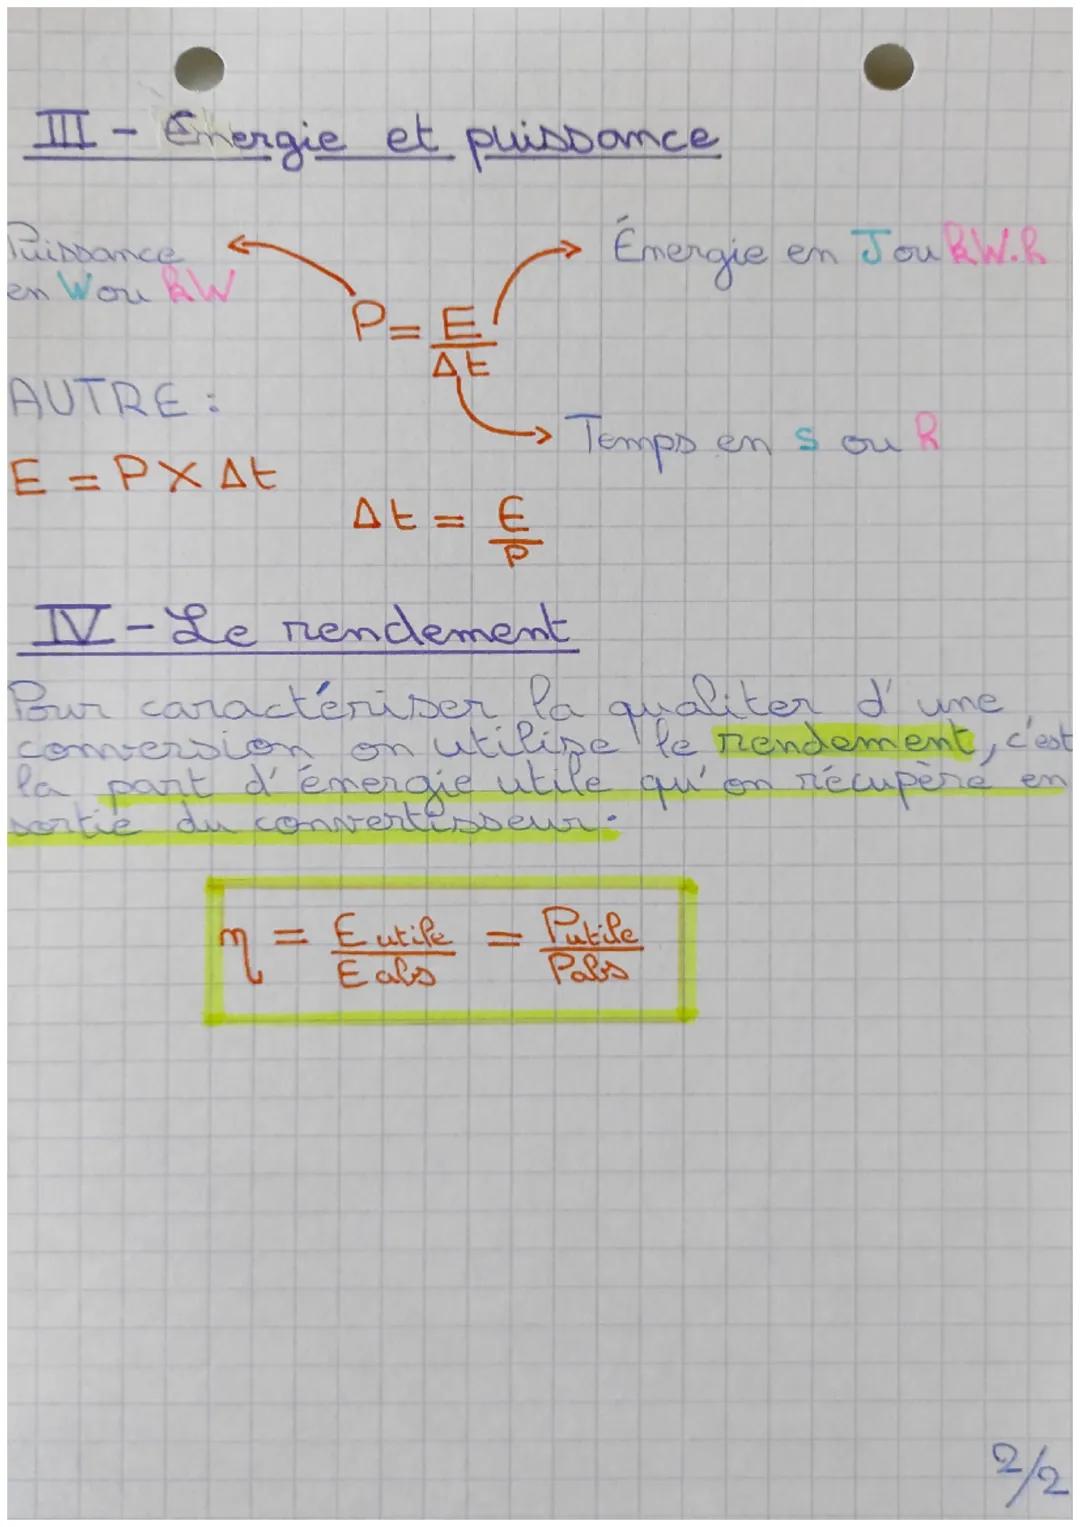 III - Énergie et puissance
Puissance
en W ou kW
Énergie en J ou kW.h
P = E
Δt
AUTRE :
Temps en s ou h
E = P X Δt
Δt = E
P
IV - Le rendement
Pour caractériser la qualiter d'une
conversion on utilise le rendement, c'est
la part d'énergie utile qu'on récupère en
sortie du convertisseur.
η = E utile = Putile
E abs Pabs
2/2